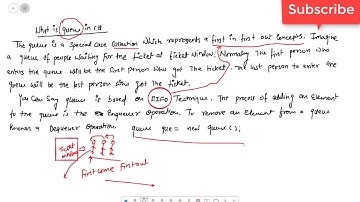 Subscribe
What is queue in c#
The queue is a special case collection which represents a first in first out concepts. Imagine
a queue of people waiting for the ticket at ticket window. Normally the first person who
enters the queue will be the first person who got the ticket. The last person to enter the
queue will be the last person who got the ticket.
You can say queue is based on FIFO Technique. The process of adding an Element
to the queue is the Enqueue operation. To remove an Element from a queue
known a Dequeue operation. queue que = new queue();
Ticket
window
First come First out